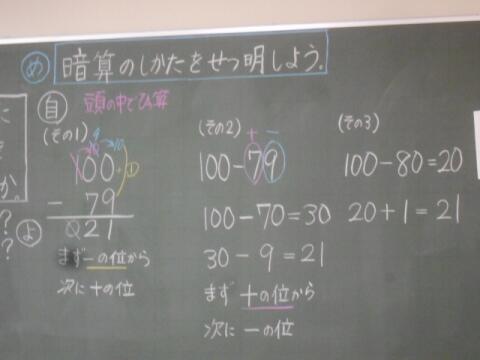 め 暗算のしかたをせつ明しよう。
自 頭の中でひっ算
(その1)
9 10
100
- 79
021
まず一の位から
次に十の位
(その2)
+ -
100-79
100-70=30
30-9=21
まず十の位から
次に一の位
(その3)
100-80=20
20+1=21
に
か。
?
?
よ